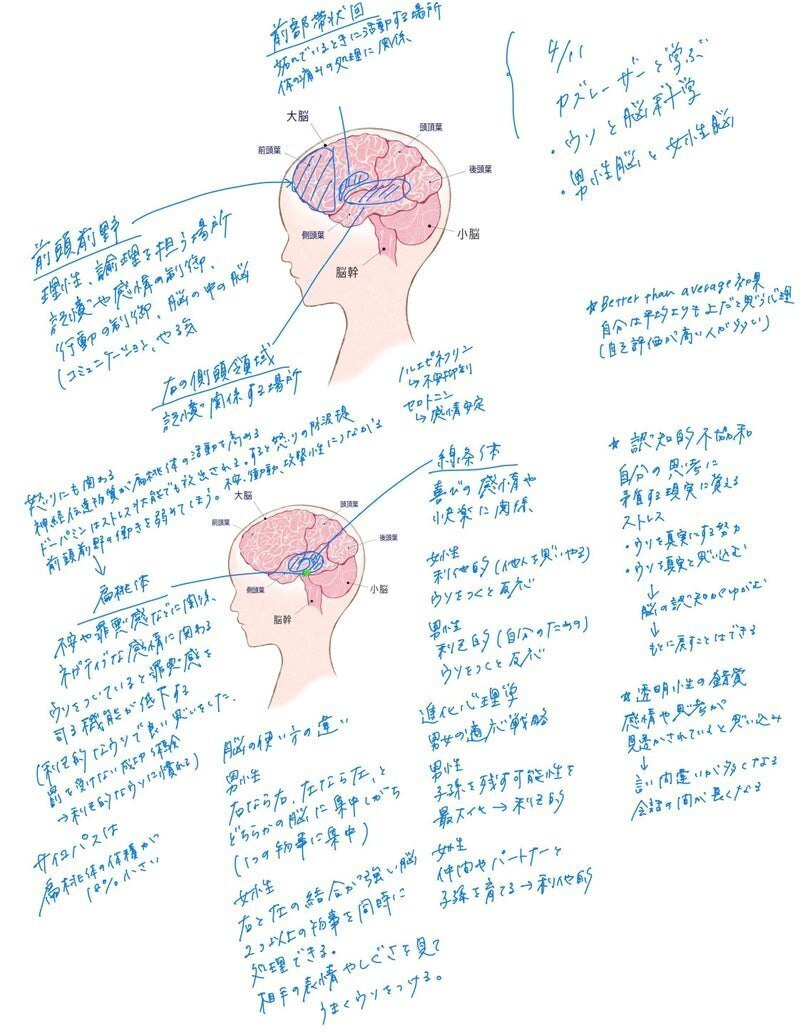 前部帯状回
妬んでいるときに活動する場所
体の痛みの処理に関係、
4/11
カズレーザーと学ぶ
・ウソと脳科学
・男性脳と女性脳
大脳
前頭葉
頭頂葉
後頭葉
側頭葉
小脳
脳幹
前頭前野
理性、論理を担う場所
記憶や感情の制御、
行動の制御、脳の中の脳
(コミュニケーション、やる気
右の側頭領域
記憶に関係する場所
ノルエピネフリン
↳不安抑制
セロトニン
↳感情安定
☆Better than average効果
自分は平均よりも上だと思う心理
(自己評価が高い人が多い)
怒りにも関わる
神経伝達物質が扁桃体の活動を高める
ドーパミンはストレス状態でも放出される。すると怒りの防波堤
前頭前野の働きを弱めてしまう。不安、衝動、攻撃性につながる
↓
大脳
前頭葉
頭頂葉
後頭葉
側頭葉
小脳
脳幹
扁桃体
不安や罪悪感などに関係、
ネガティブな感情に関わる
ウソをついていると罪悪感を
司る機能が低下する
(利己的なウソで良い思いをした、
罰を受けない成功体験
→利己的なウソに慣れる)
サイコパスは
扁桃体の体積が
18%小さい
線条体
喜びの感情や
快楽に関係、
女性
利他的(他人を思いやる)
ウソをつくと反応
男性
利己的(自分のための)
ウソをつくと反応
進化心理学
男女の適応戦略
男性
子孫を残す可能性を
最大化→利己的
女性
仲間やパートナーと
子孫を育てる→利他的
脳の使い方の違い
男性
右なら右、左なら左、と
どちらかの脳に集中しがち
(1つの物事に集中)
女性
右と左の結合が強い脳
2つ以上の物事を同時に
処理できる。
相手の表情やしぐさを見て
うまくウソをつける。
☆認知的不協和
自分の思考に
矛盾する現実に覚える
ストレス
・ウソを真実にする努力
・ウソを真実と思い込む
↓
脳の認知がゆがむ
↓
もとに戻すことはできる
☆透明性の錯覚
感情や思考が
見透かされていると思い込み
↓
言い間違いが多くなる
会話の間が長くなる